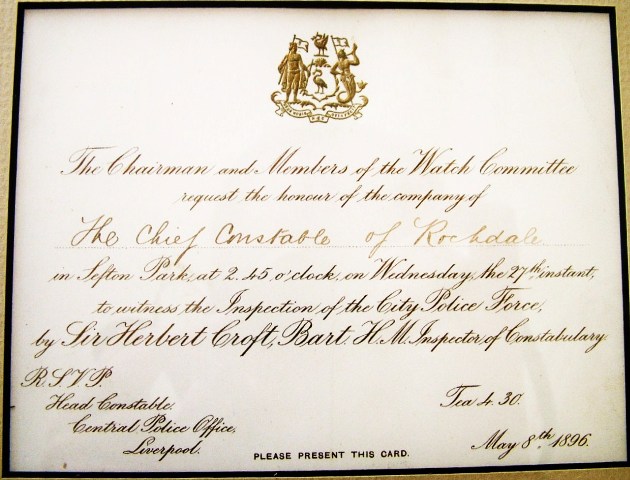 The Chairman and Members of the Watch Committee
request the honour of the company of
The Chief Constable of Rochdale
in Sefton Park, at 2.45 o'clock, on Wednesday, the 27th instant,
to witness the Inspection of the City Police Force,
by Sir Herbert Croft, Bart. H.M. Inspector of Constabulary.
R.S.V.P.
Head Constable.
Central Police Office,
Liverpool.
Tea 4.30.
May 8th 1896.
PLEASE PRESENT THIS CARD.